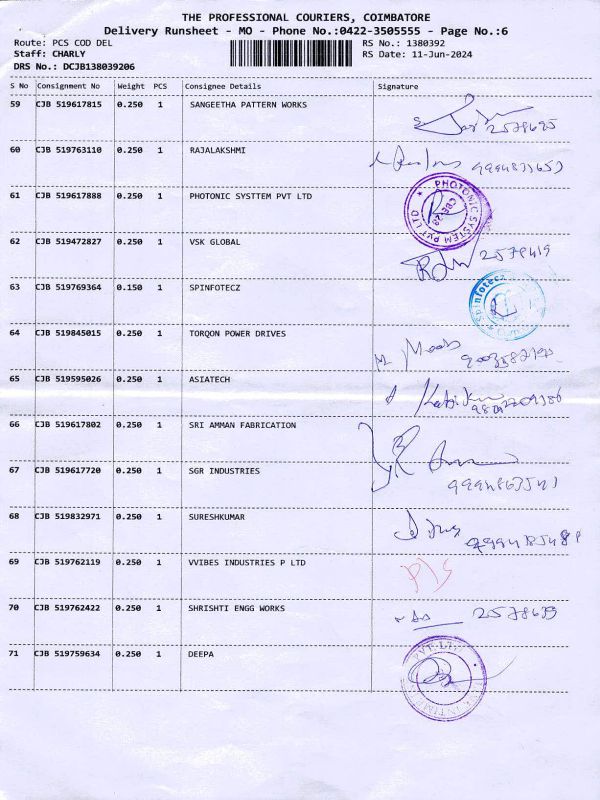 THE PROFESSIONAL COURIERS, COIMBATORE
Delivery Runsheet - MO - Phone No.:0422-3505555 - Page No.:6
Route: PCS COD DEL RS No.: 1380392
Staff: CHARLY RS Date: 11-Jun-2024
DRS No.: DCJB138039206
S No Consignment No Weight PCS Consignee Details Signature
59 CJB 519617815 0.250 1 SANGEETHA PATTERN WORKS
2578695
60 CJB 519763110 0.250 1 RAJALAKSHMI
61 CJB 519617888 0.250 1 PHOTONIC SYSTTEM PVT LTD
PHOTONIC SYSTEM PVT LTD
62 CJB 519472827 0.250 1 VSK GLOBAL
2578419
63 CJB 519769364 0.150 1 SPINFOTECZ
Spinfotecz
64 CJB 519845015 0.250 1 TORQON POWER DRIVES
65 CJB 519595026 0.250 1 ASIATECH
66 CJB 519617802 0.250 1 SRI AMMAN FABRICATION
67 CJB 519617720 0.250 1 SGR INDUSTRIES
68 CJB 519832971 0.250 1 SURESHKUMAR
69 CJB 519762119 0.250 1 VVIBES INDUSTRIES P LTD
70 CJB 519762422 0.250 1 SHRISHTI ENGG WORKS
2578639
71 CJB 519759634 0.250 1 DEEPA
PVT LTD